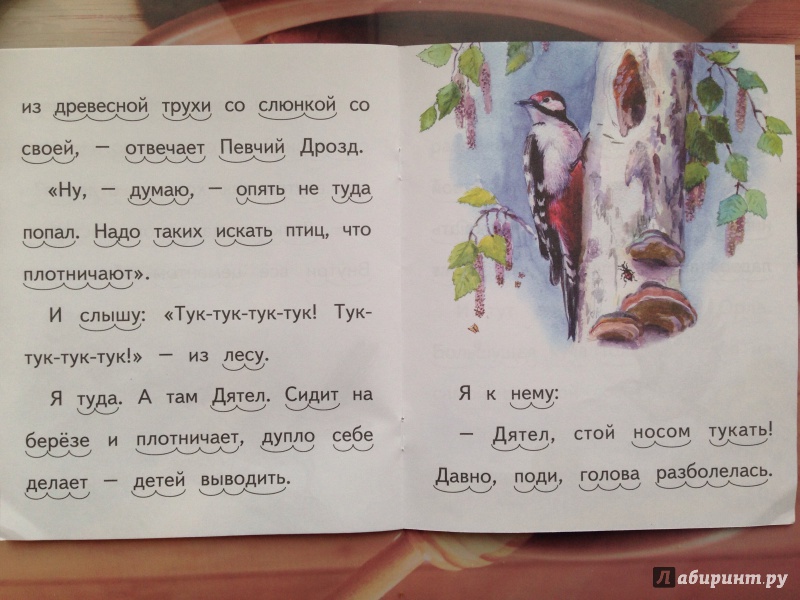 из древесной трухи со слюнкой со
своей, — отвечает Певчий Дрозд.
«Ну, — думаю, — опять не туда
попал. Надо таких искать птиц, что
плотничают».
И слышу: «Тук-тук-тук-тук! Тук-
тук-тук-тук!» — из лесу.
Я туда. А там Дятел. Сидит на
берёзе и плотничает, дупло себе
делает — детей выводить.
Я к нему:
— Дятел, стой носом тукать!
Давно, поди, голова разболелась.
Лабиринт.ру